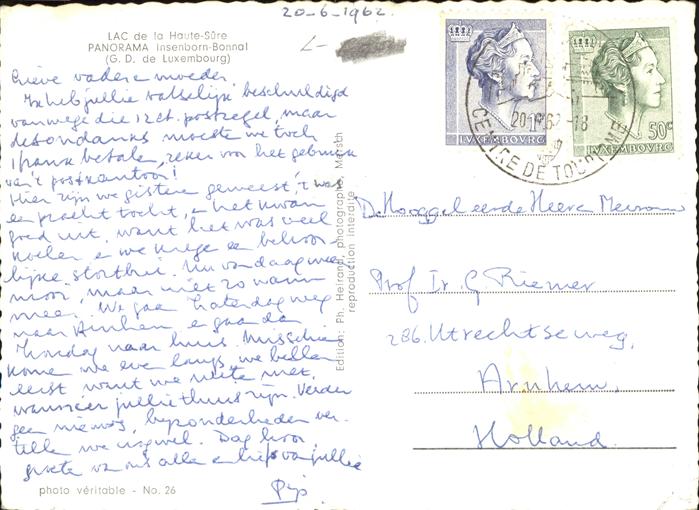 20-6-1962.
LAC de la Haute-Sûre
PANORAMA Insenborn-Bonnal
(G. D. de Luxembourg)
Lieve vader & moeder
Ik heb jullie valselijk beschuldigd
vanwege die 12 ct. postzegel, maar
desondanks moeste we toch
1 frank betale, zeker voor het gebruik
van 't postkantoor!
Hier zijn we gistere geweest, 't was
een pracht tocht, & het kwam
goed uit, want het was veel
koeler & we krege een behoor-
lijke stortbui. Nu vandaag weer
mooi, maar niet zo warm
meer. We gaan Zaterdag weg
naar Arnhem & gaan dan
Zondag naar huis. Misschien
kome we eve langs, we bellen
eerst want we wete niet
wanneer jullie thuis zijn. Verder
geen nieuws, bijzonderheden ver-
telle we nog wel. Dag hoor
groete van ons alle & liefs van jullie
Pijs
photo véritable - No. 26
Edition: Ph. Heirand, photographe, Mersch
reproduction interdite
LUXEMBOURG
50c
LUXEMBOURG
20-6-62-18
CENTRE DE TOURISME
De Hooggeleerde Heer & Mevrouw
Prof Ir. G Riemer
286, Utrechtseweg,
Arnhem.
Holland.